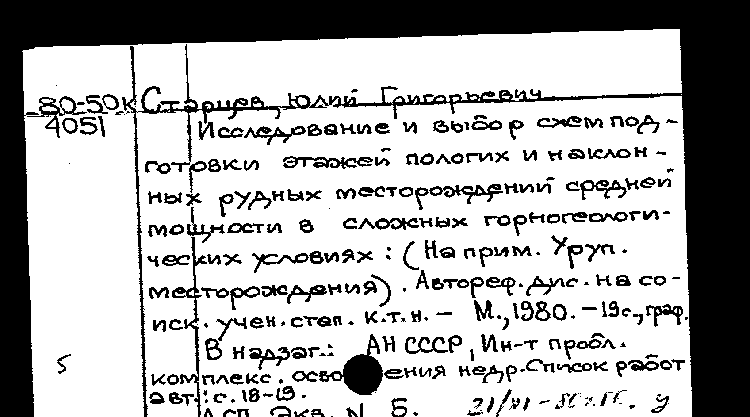 80-50к Старцев, Юлий Григорьевич
4051 Исследование и выбор схем под-
готовки этажей пологих и наклон-
ных рудных месторождений средней
мощности в сложных горногеологи-
ческих условиях: (На прим. Уруп.
месторождения). Автореф. дис. на со-
иск. учен. степ. к.т.н. - М., 1980. - 19с., граф.
В надзаг.: АН СССР, Ин-т пробл.
5 комплекс. осво ения недр. Список работ
авт.: с. 18-19.
Экз. N 5.